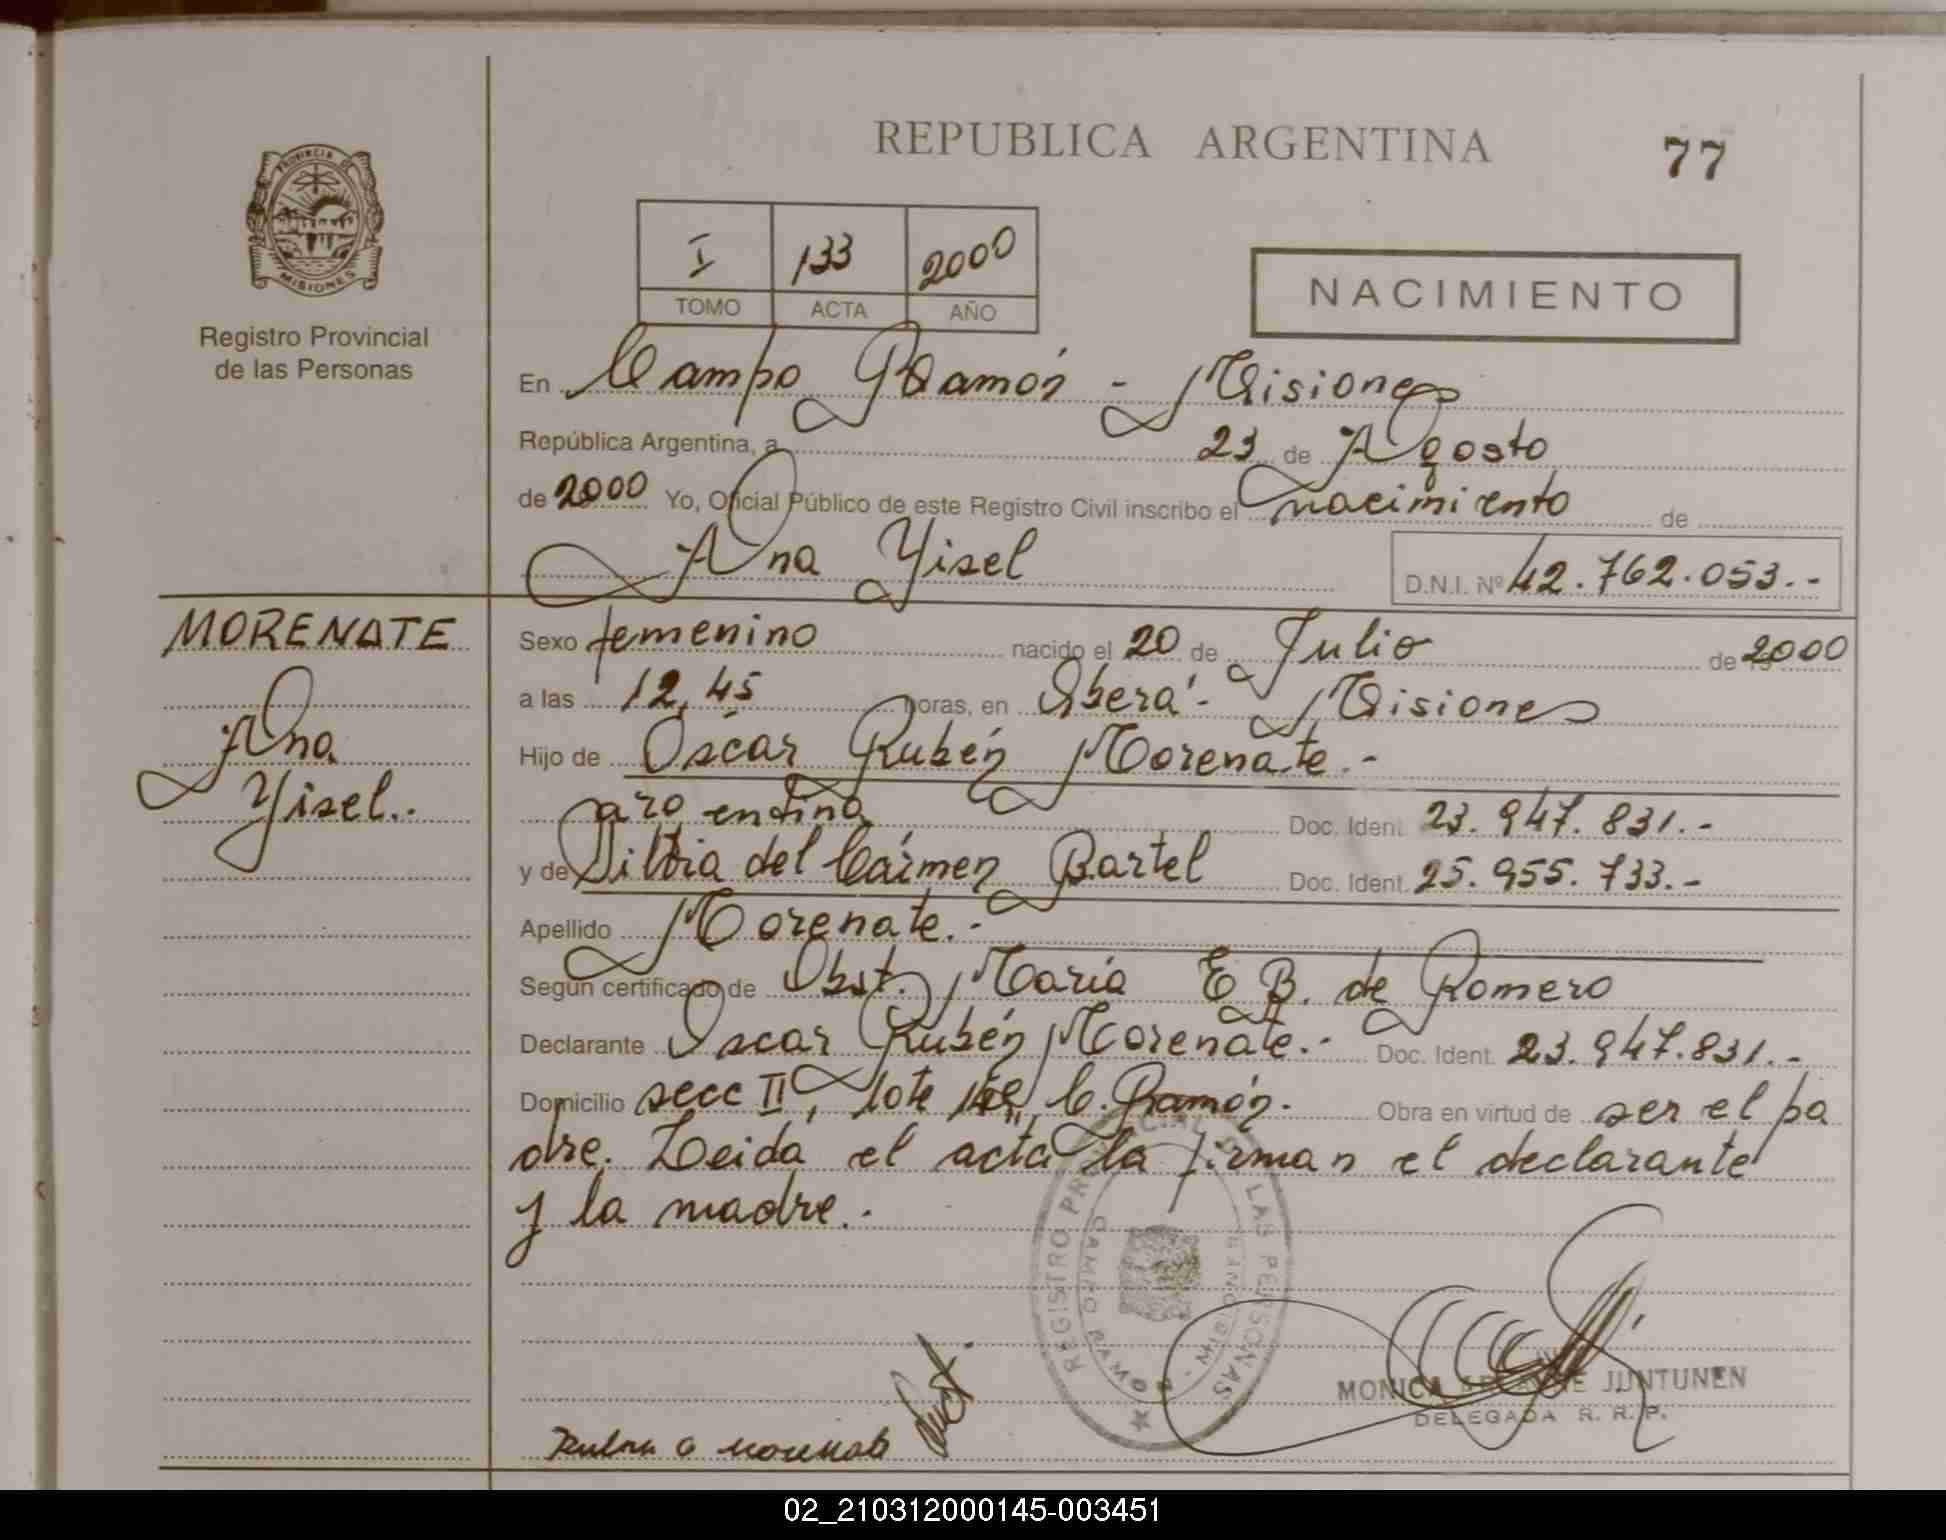 REPUBLICA ARGENTINA
77
PROVINCIA DE
MISIONES
Registro Provincial
de las Personas
I 133 2000
TOMO ACTA AÑO
NACIMIENTO
En Campo Ramón - Misiones
República Argentina, a 23 de Agosto
de 2000 Yo, Oficial Público de este Registro Civil inscribo el nacimiento de
Ana Yisel
D.N.I. Nº 42.762.053.-
MORENATE
Ana
Yisel.-
Sexo femenino nacido el 20 de Julio de 2000
a las 12,45 horas, en Oberá - Misiones
Hijo de Oscar Rubén Morenate.-
argentina Doc. Ident. 23.947.831.-
y de Silvia del Cármen Bartel Doc. Ident. 25.955.733.-
Apellido Morenate.-
Según certificado de Obst. María E B. de Romero
Declarante Oscar Rubén Morenate.- Doc. Ident. 23.947.831.-
Domicilio secc II, lote C. Ramón. Obra en virtud de ser el pa
dre. Leida el acta la firman el declarante
y la madre.-
REGISTRO PROVINCIAL DE LAS PERSONAS
CAMPO RAMON - MISIONES
MONICA JUNTUNEN
DELEGADA R. R. P.
02_210312000145-003451